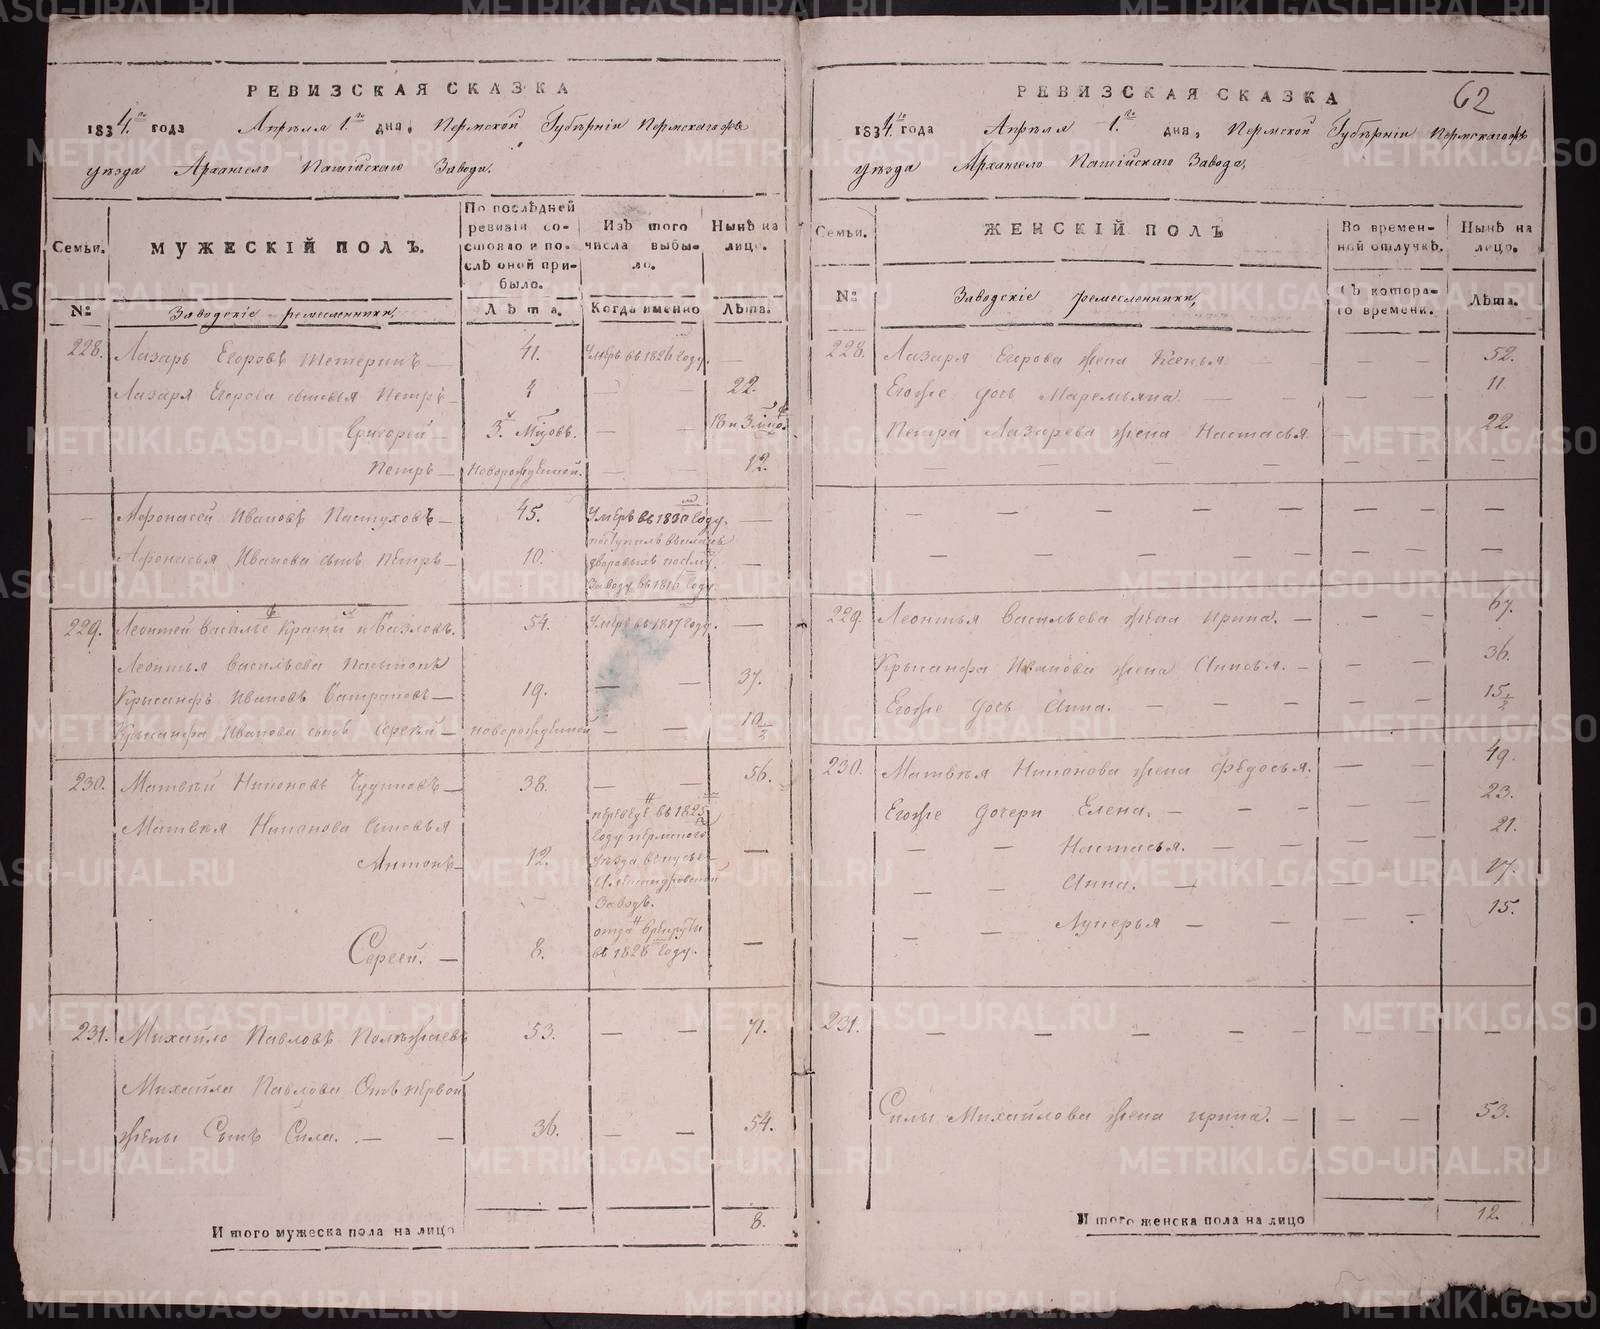 РЕВИЗСКАЯ СКАЗКА
1834.го года Апрѣля 1.го дня, Пермской Губѣрніи Пермскагожъ
уѣзда Архангело Пашійскаго Завода.
Семьи.
МУЖЕСКІЙ ПОЛЪ.
По послѣдней ревизіи состояло и послѣ оной прибыло.
Изъ того числа выбыло.
Нынѣ на лицо.
№
Заводскіе ремесленники,
Лѣта.
Когда именно
Лѣта.
228. Лазарь Егоровъ Тетеринъ — 41. Умеръ въ 1826 году. —
Лазаря Егорова сыновья Петръ — 4 — — 22.
Григорій — 3.х Мцовъ. — — 18 и 3 мцо.
Петръ — новорожденной. — — 12.
— Афонасей Ивановъ Пастуховъ — 45. Умеръ въ 1830 году. —
Афонасья Ивановa сынъ Петръ — 10. поступилъ въ дворовыхъ заводу въ 1816 году. —
229. Леонтей Васильевъ Красныхъ 54. Умеръ въ 1817 году. —
Леонтья Васильева
Крысанфъ Ивановъ — 19. — — 37.
Крысанфа Иванова сынъ Сергѣй — новорожденной — — 10 1/2
230. Матвѣй Никоновъ Чудиновъ — 38. — — 56.
Матвѣя Никонова сыновья
Антонъ — 12. переведенъ въ 1825 году пермского уѣзда въ Александровской Заводъ. —
Сергей. — 8. отданъ в рекруты въ 1828 году. —
231. Михайло Павловъ Полѣжаевъ 53. — — 71.
Михайла Павлова Отъ первой
жены Сынъ Сила. — — 36. — — 54.
Итого мужеска пола на лицо 8.
62
РЕВИЗСКАЯ СКАЗКА
1834.го года Апрѣля 1.го дня, Пермской Губѣрніи Пермскагожъ
уѣзда Архангело Пашійскаго Завода,
Семьи.
ЖЕНСКІЙ ПОЛЪ
Во временной отлучкѣ.
Нынѣ на лицо.
№
Заводскіе ремесленники,
Съ котораго времени.
Лѣта.
228. Лазаря Егорова жена Ксенья — — — 52.
Егожъ дочь Маремьяна. — — — 11
Петра Лазарева жена Настасья — — 22.
— — — — — — —
— — — — — — —
— — — — — — —
229. Леонтья Васильева жена Ирина. — — — 67.
Крысанфа Иванова жена Анисья. — — — 36.
Егожѣ дочь Анна. — — — — — 15 1/2
230. Матвѣя Никонова жена Федосья. — — 49.
Егожѣ дочери Елена. — — — — — 23.
— — Настасья. — — — — 21.
— — Анна. — — — — 17.
— — Лукерья — — — 15.
231. — — — — — — —
Силы Михайлова жена Ирина. — — — 53.
Итого женска пола на лицо 12.
METRIKI.GASO-URAL.RU